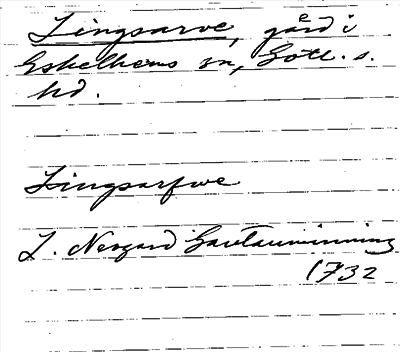 Lingsarve, gård i
Eskelhems sn, Gotl. s.
hd.
Lingsarfwe
L. Neogard Gautauminning
1732